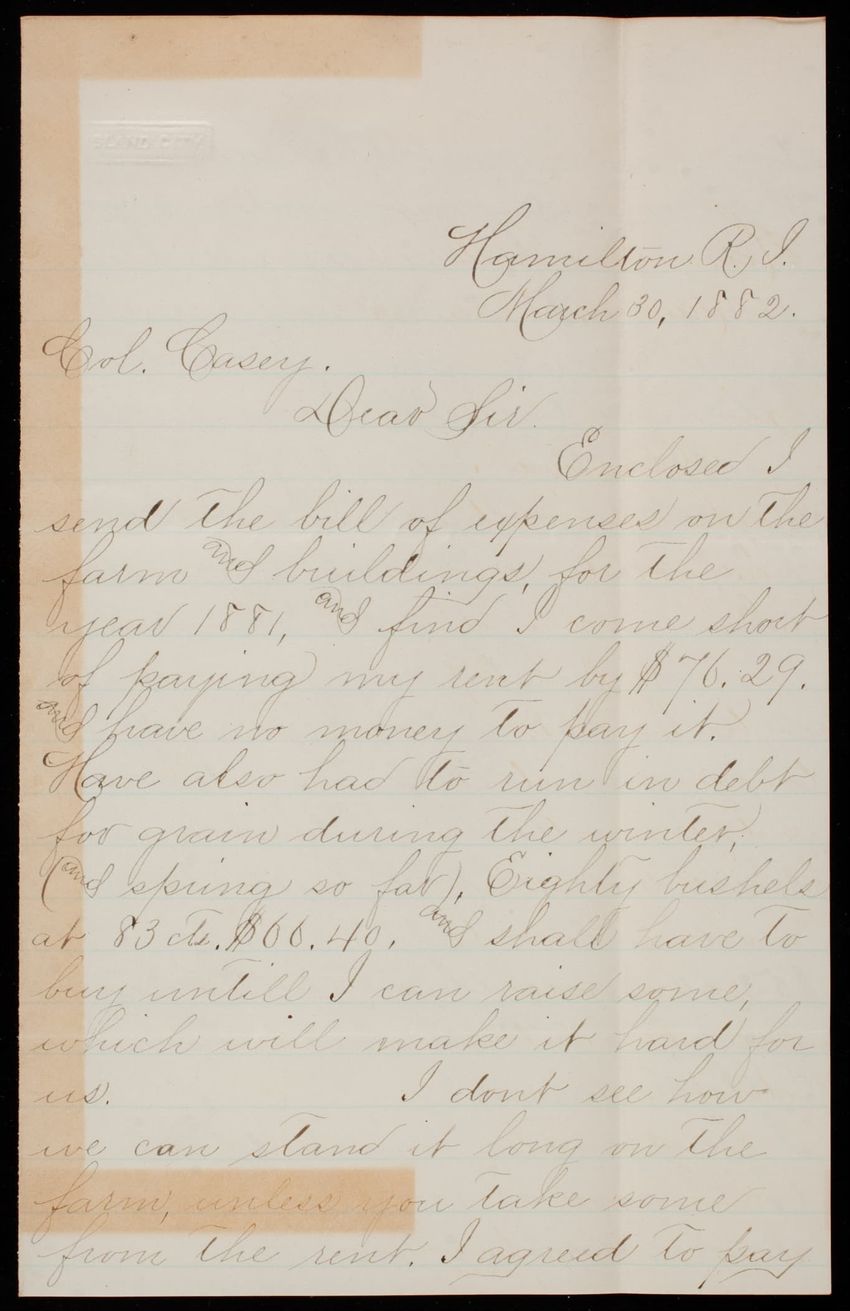 Hamilton R. I.
March 30, 1882.
Col. Casey.
Dear Sir.
Enclosed I
send the bill of expenses on the
farm and buildings, for the
year 1881, and find I come short
of paying my rent by $76.29.
and have no money to pay it.
Have also had to run in debt
for grain during the winter,
(and spring so far), Eighty bushels
at 83 cts. $66.40. and shall have to
buy untill I can raise some,
which will make it hard for
us. I dont see how
we can stand it long on the
farm, unless you take some
from the rent. I agreed to pay